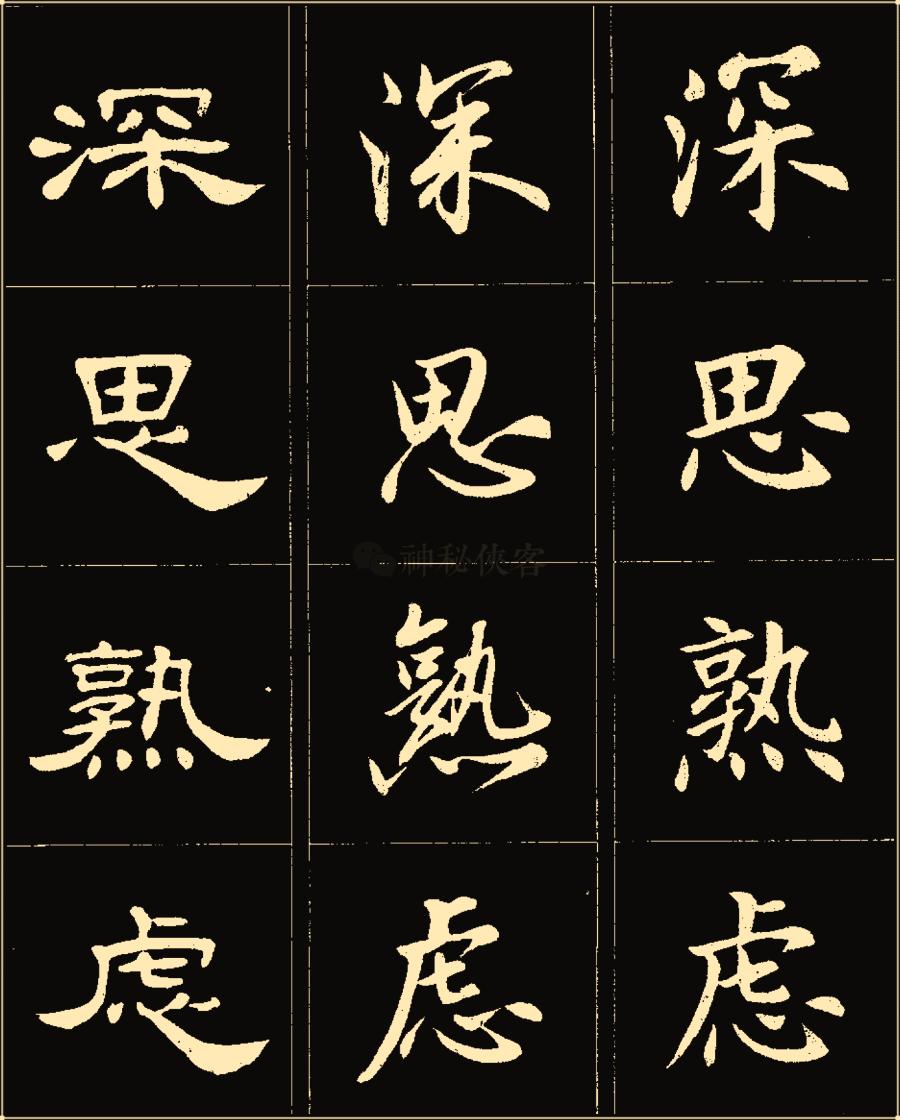 深 深 深
思 思 思
熟 熟 熟
虑 虑 虑
神秘侠客